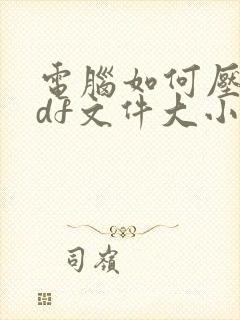 電腦如何壓
df文件大小
司嶺